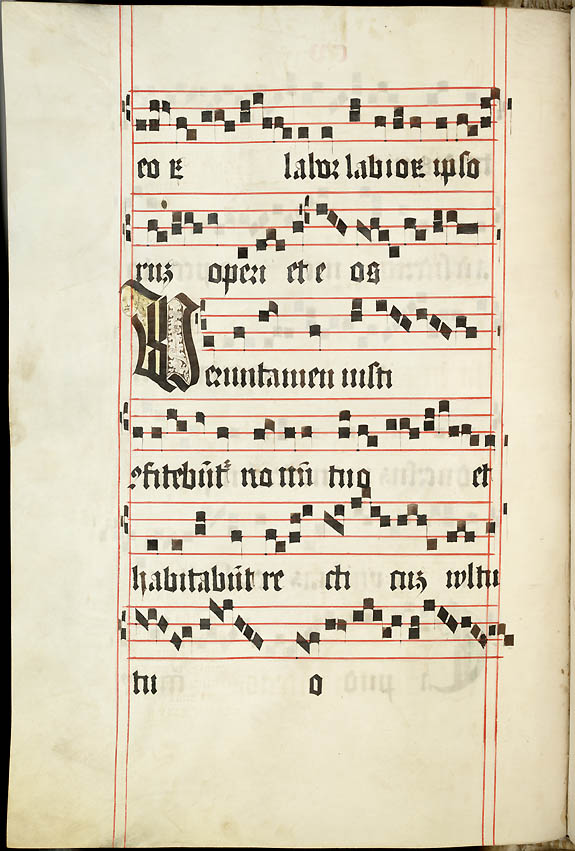 eoꝝ laboꝛ labioꝝ ipso
rum operi et eos
Veruntamen iusti
ꝯfitebūt᷑ noīni tuo et
habitabūt recti cum vultu
tuo